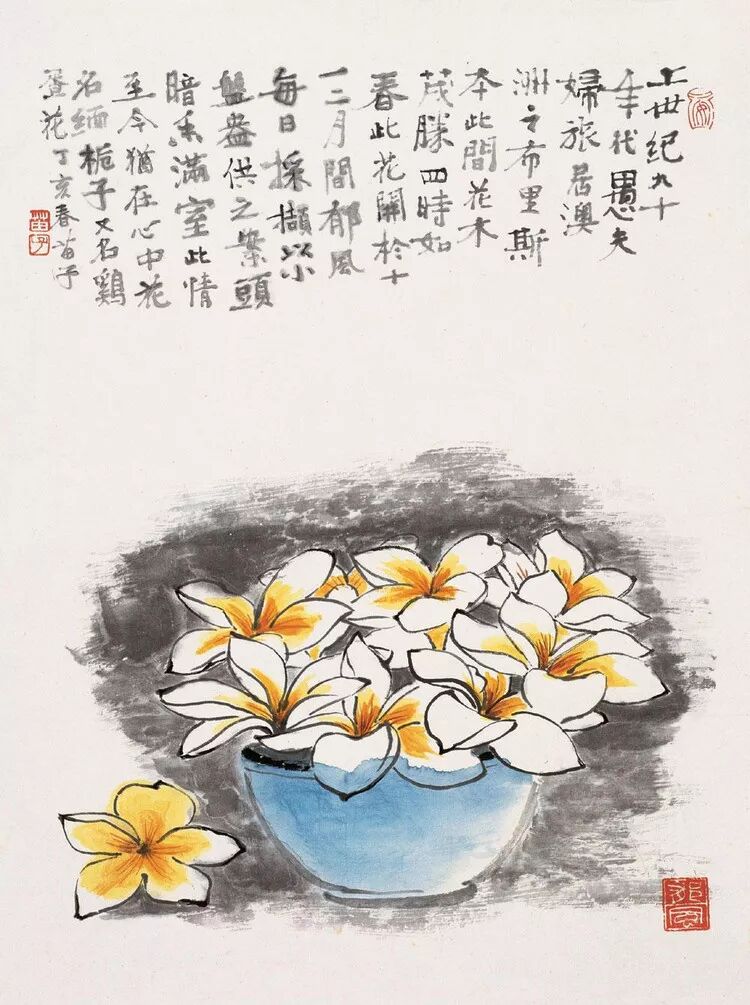 上世纪九十
年代愚夫
婦旅居澳
洲之布里斯
本此間花木
茂勝四時如
春此花開於十
一二月間郁風
每日採擷以小
盤盎供之案頭
暗香滿室此情
至今猶在心中花
名缅栀子又名鷄
蛋花丁亥春苗子
苗子
郁風